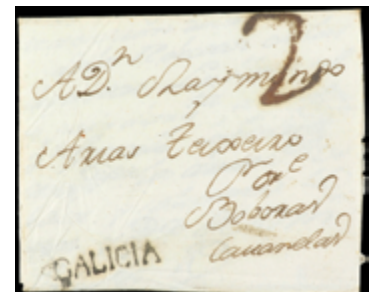 2
A Dn Raymundo
y
Arias Teixeiro
Pore
Boboras
Cavanelas
GALICIA